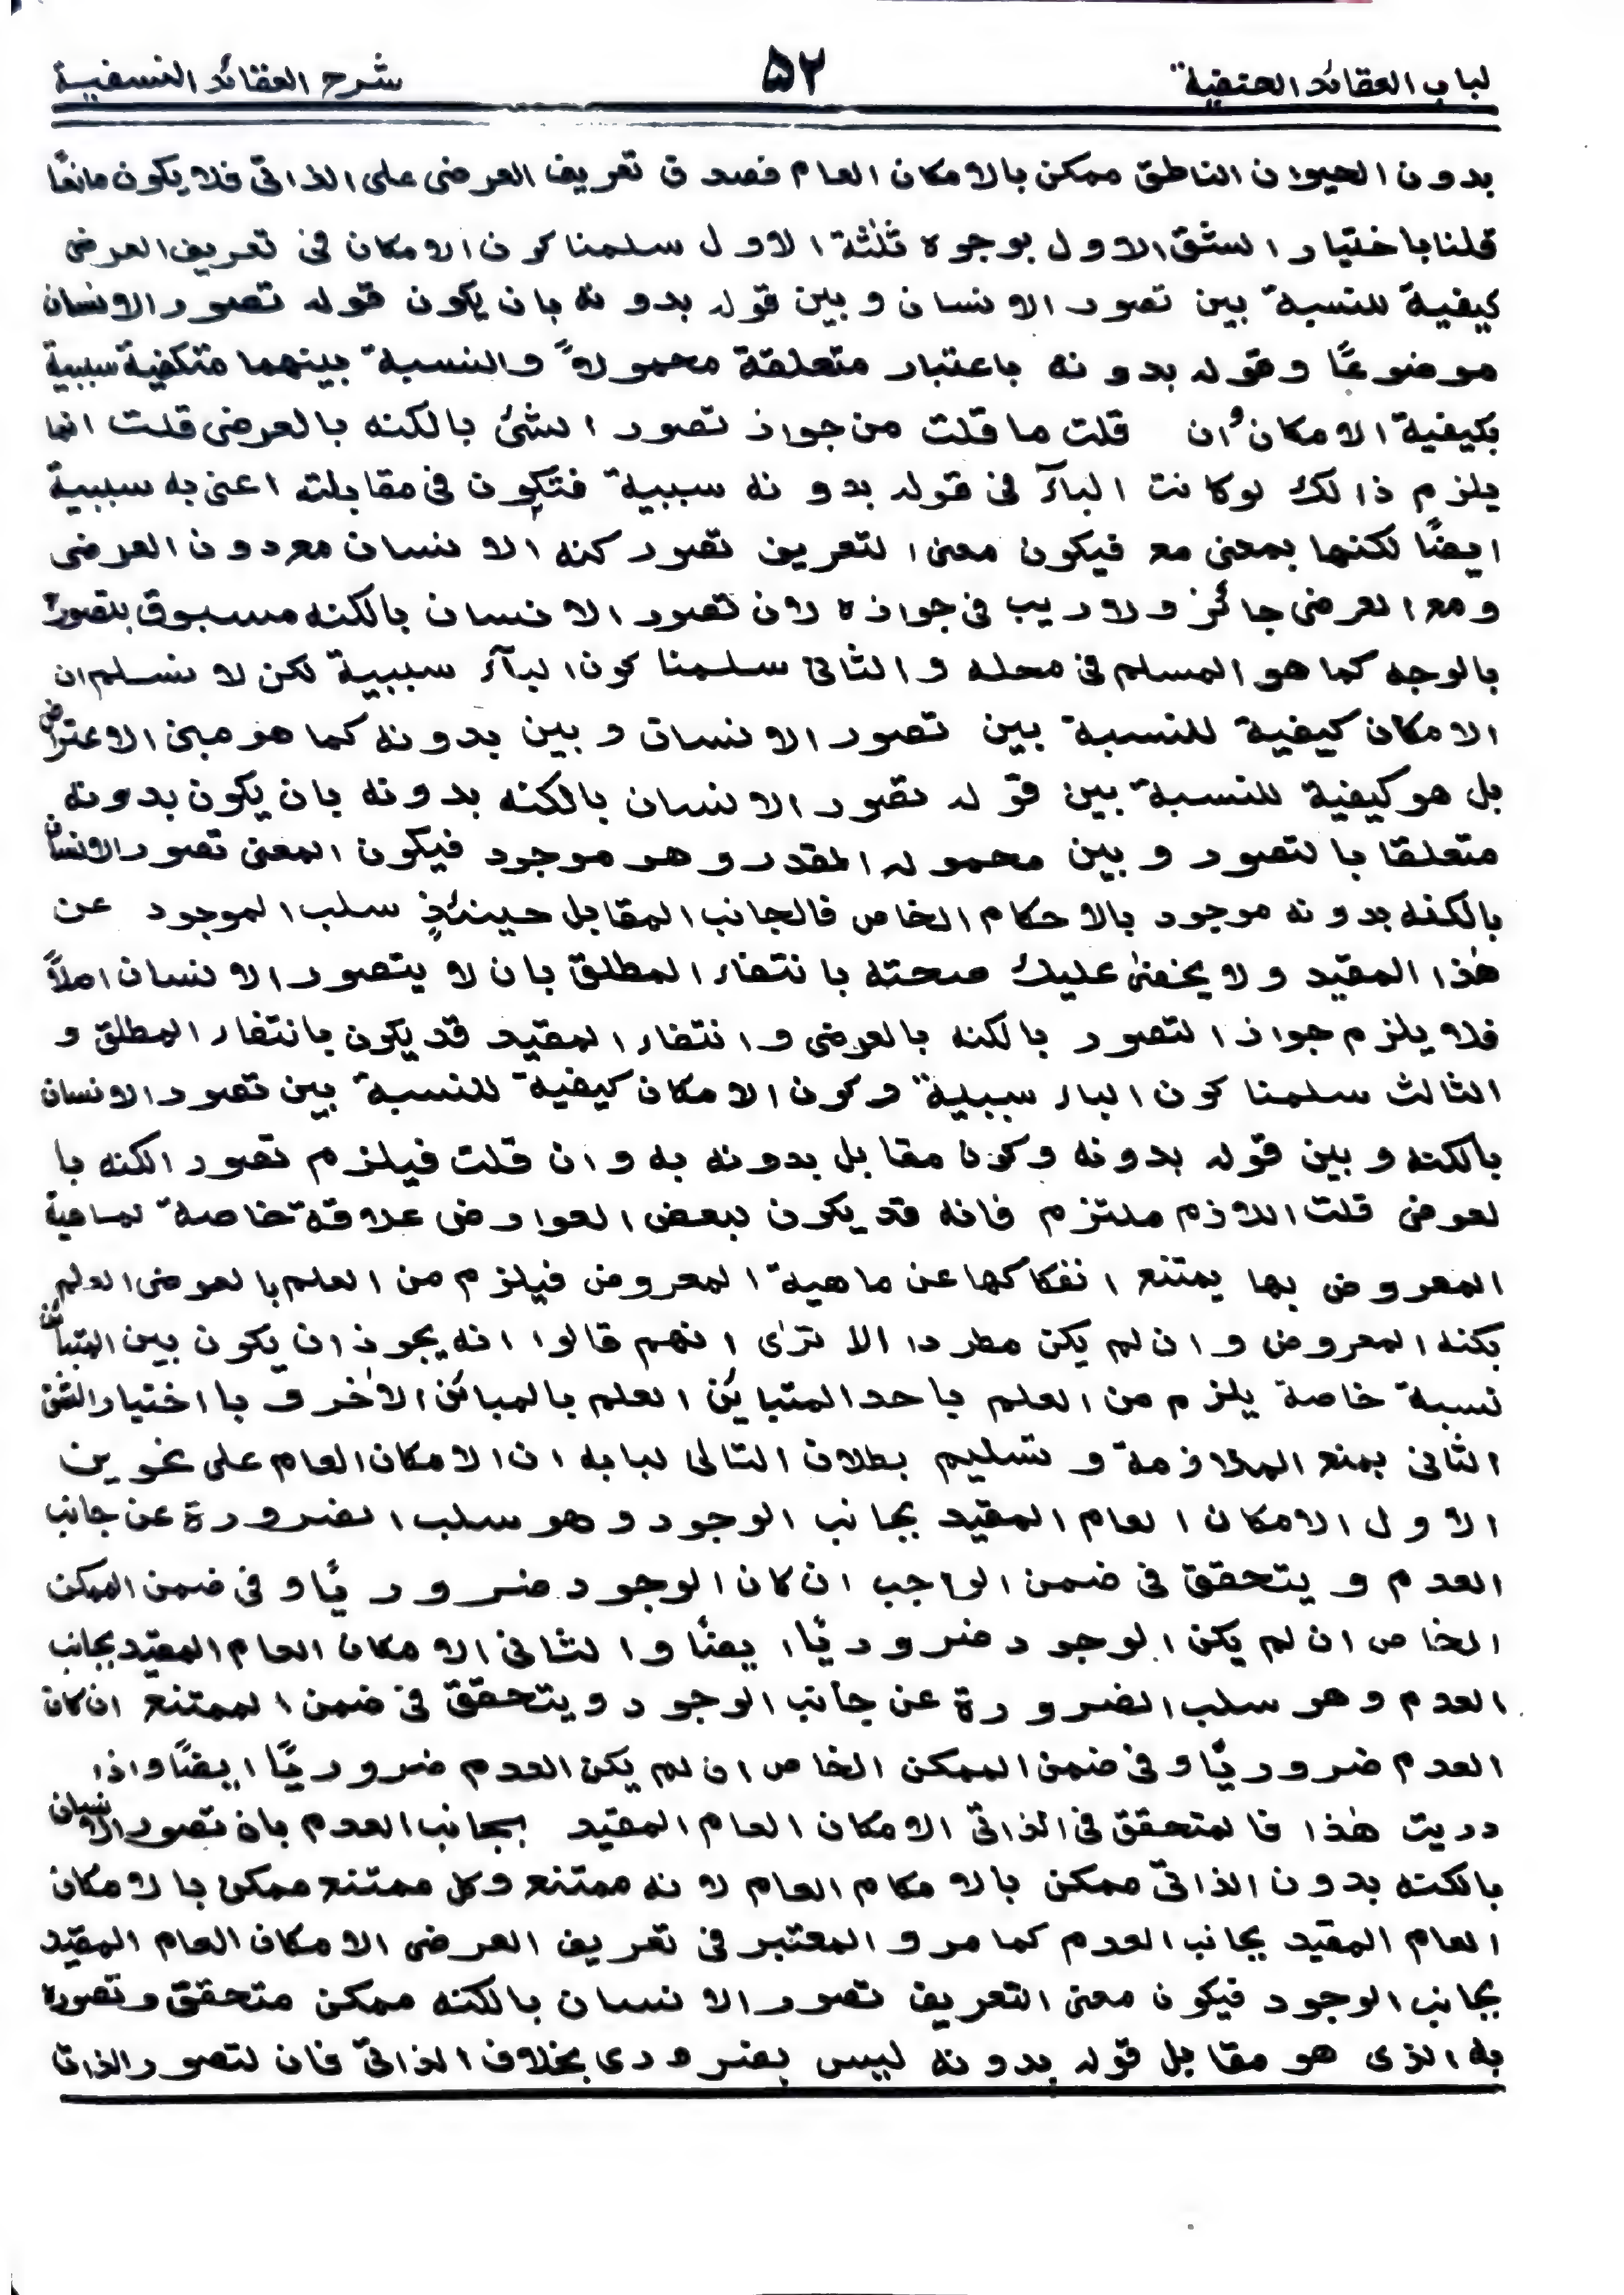 لباب العقائد الحنفية ۵۲ شرح العقائد النسفية
بدون الحيوان الناطق ممكن بالامكان العام فصدق تعريف العرضى على الذاتى فلا يكون مانعًا
قلنا باختيار الشق الاول بوجوه ثلٰثة الاول سلمنا كون الامكان فى تعريف العرضى
كيفية للنسبة بين تصور الانسان وبين قوله بدونه بان يكون قوله تصور الانسان
موضوعًا وقوله بدونه باعتبار متعلقة محمولاً والنسبة بينهما متكفية سببية
بكيفية الامكان وان قلت ما قلت من جواز تصور الشئ بالكنه بالعرضى قلت انما
يلزم ذالك لوكانت البآء فى قوله بدونه سببية فتكون فى مقابلته اعنى به سببية
ايضًا لكنها بمعنى مع فيكون معنى التعريف تصور كنه الانسان مع دون العرضى
ومع العرضى جائز ولا ريب فى جوازه لان تصور الانسان بالكنه مسبوق بتصوره
بالوجه كما هو المسلم فى محله والثانى سلمنا كون البآء سببية لكن لا نسلم ان
الامكان كيفية للنسبة بين تصور الانسان وبين بدونه كما هو مبنى الاعتراض
بل هو كيفية للنسبة بين قوله تصور الانسان بالكنه بدونه بان يكون بدونه
متعلقا بالتصور وبين محموله المقدر وهو موجود فيكون المعنى تصور الانسان
بالكنه بدونه موجود بالاحكام الخاص فالجانب المقابل حينئذٍ سلب الموجود عن
هٰذا المقيد ولا يخفىٰ عليك صحته بانتفاء المطلق بان لا يتصور الانسان اصلاً
فلا يلزم جواز التصور بالكنه بالعرضى وانتفاء المقيد قد يكون بانتفاء المطلق و
الثالث سلمنا كون الباء سببية وكون الامكان كيفية للنسبة بين تصور الانسان
بالكنه وبين قوله بدونه وكون مقابل بدونه به وان قلت فيلزم تصور الكنه با
لعرض قلت اللازم ملتزم فانه قد يكون لبعض العوارض علاقة خاصة لماهية
المعروض بها يمتنع انفكاكها عن ماهية المعروض فيلزم من العلم بالعرض العلم
بكنه المعروض وان لم يكن مطردا الا ترٰى انهم قالوا انه يجوز ان يكون بين المتبائن
نسبة خاصة يلزم من العلم باحد المتبائن العلم بالمبائن الاٰخر و با اختيار الشق
الثانى بمنع الملازمة و تسليم بطلان التالى لبابه ان الامكان العام على نحوين
الاول الامكان العام المقيد بجانب الوجود وهو سلب الضرورة عن جانب
العدم ويتحقق فى ضمن الواجب ان كان الوجود ضروريًا وفى ضمن الممكن
الخاص ان لم يكن الوجود ضروريًا ايضًا والثانى الامكان العام المقيد بجانب
العدم وهو سلب الضرورة عن جانب الوجود ويتحقق فى ضمن الممتنع ان كان
العدم ضروريًا وفى ضمن الممكن الخاص ان لم يكن العدم ضروريًا ايضًا واذا
دريت هٰذا فالمتحقق فى الذاتى الامكان العام المقيد بجانب العدم بان تصور الانسان
بالكنه بدون الذاتى ممكن بالامكام العام لانه ممتنع وكل ممتنع ممكن بالامكان
العام المقيد بجانب العدم كما مر والمعتبر فى تعريف العرضى الامكان العام المقيد
بجانب الوجود فيكون معنى التعريف تصور الانسان بالكنه ممكن متحقق وتصوره
به الذى هو مقابل قوله بدونه ليس بضرودى بخلاف الذاتى فان لتصور الذات